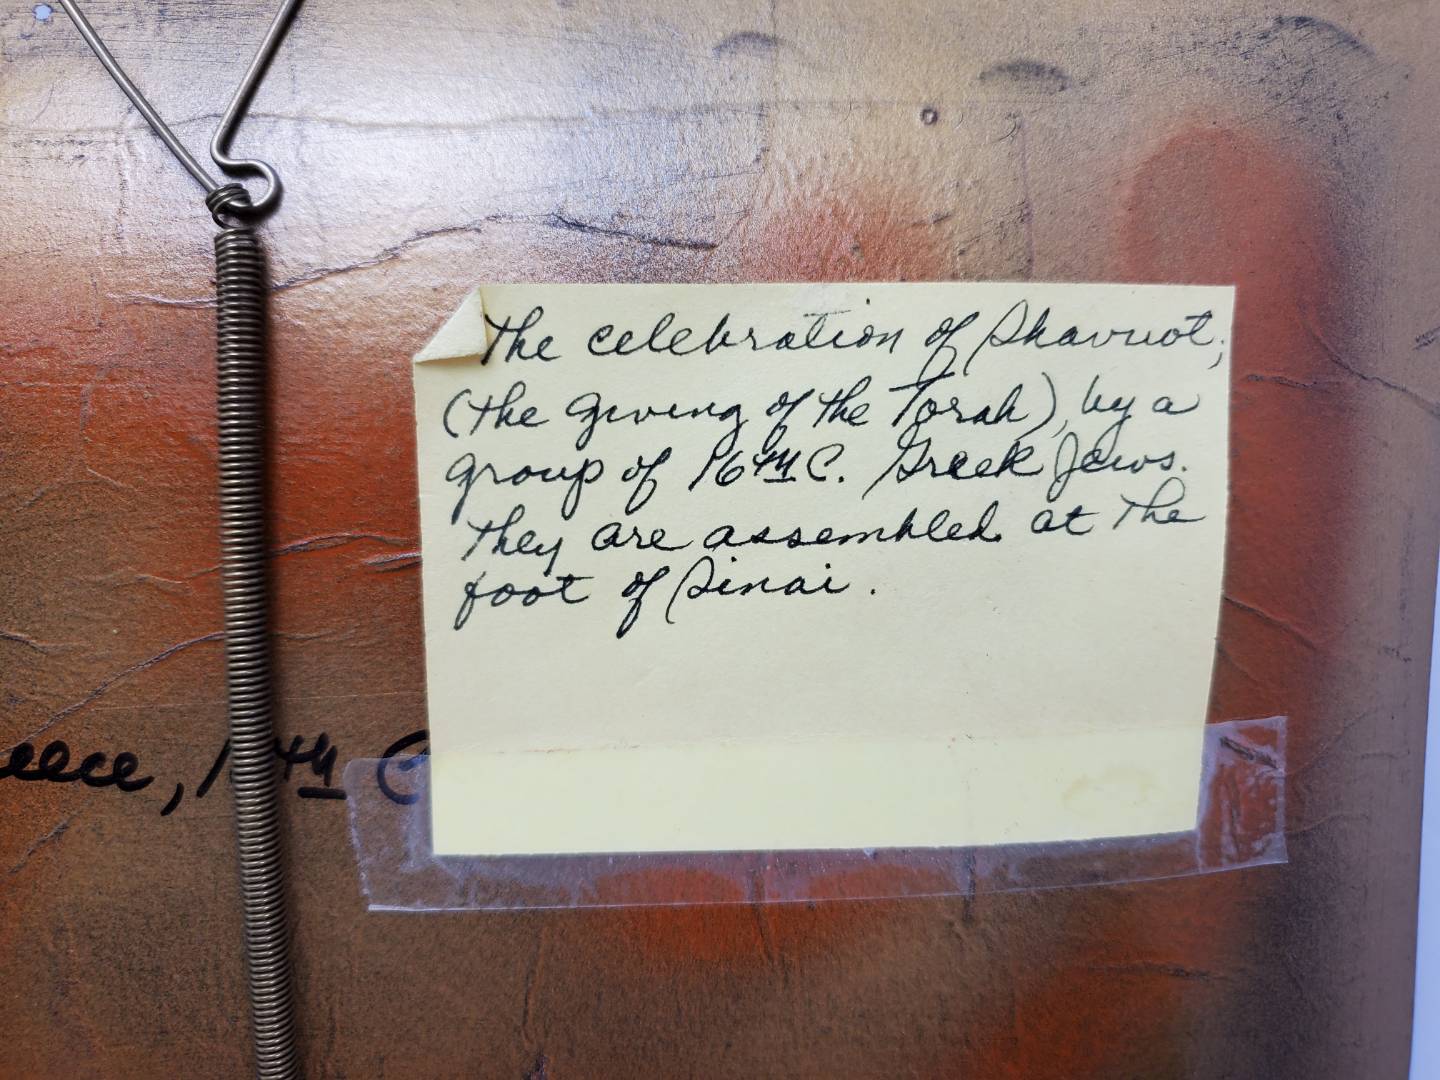 The celebration of Shavuot,
(the giving of the Torah), by a
group of 16th C. Greek Jews.
They are assembled at the
foot of Sinai.
eece, 1 th C